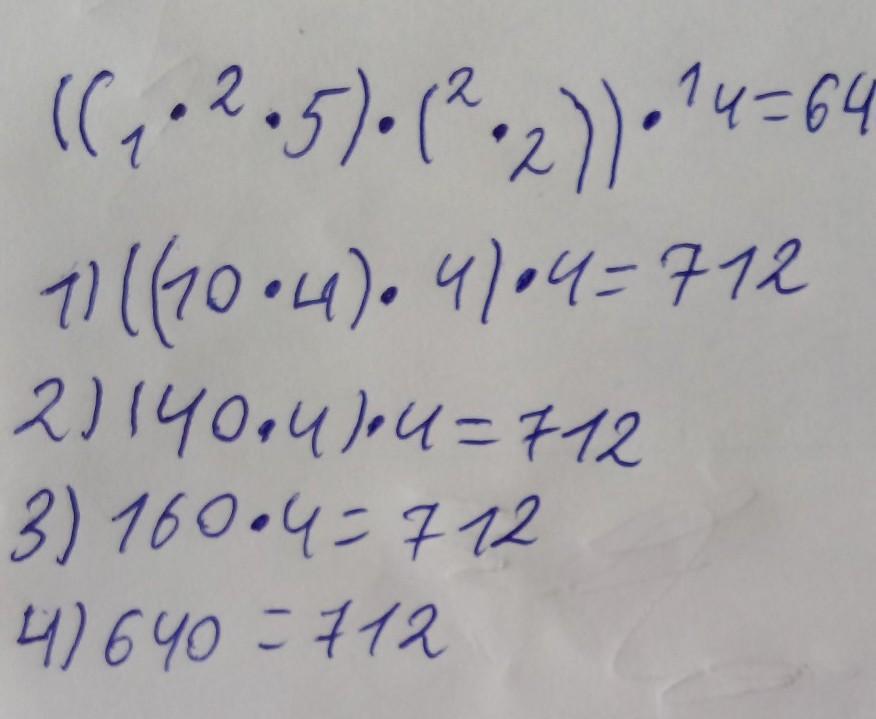 ((₁·²·5)·(²·₂))·¹4=64
1)((10·4)·4)·4=712
2)(40·4)·4=712
3)160·4=712
4)640=712